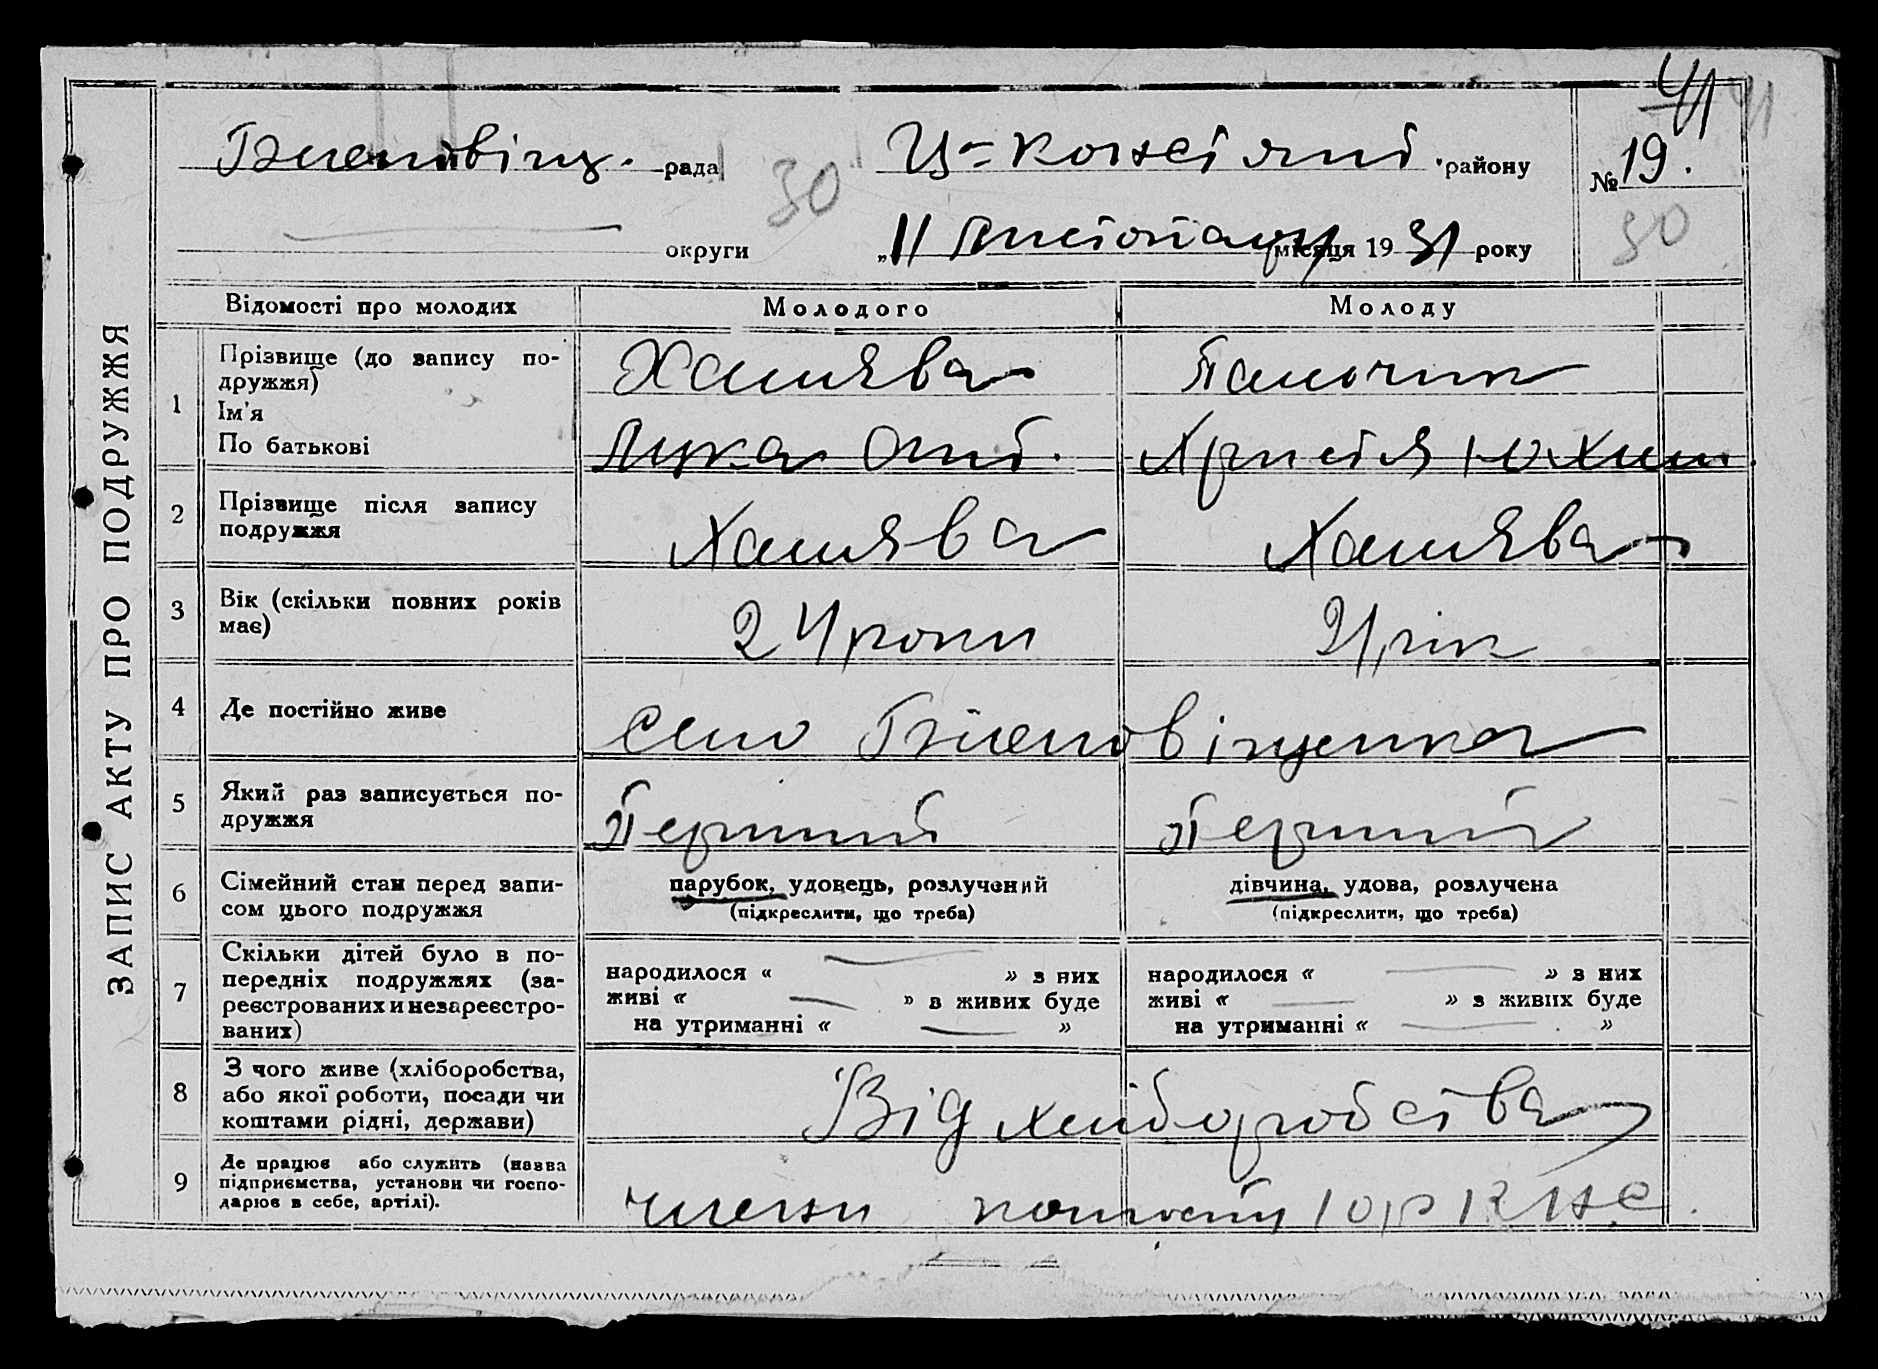 41 41
рада
району
№ 19.
30
округи
„ 11 Листопаду місяця 19 31 року
30
ЗАПИС АКТУ ПРО ПОДРУЖЖЯ
Відомості про молодих
Молодого
Молоду
1
Прізвище (до запису по-
дружжя)
Ім'я
По батькові
Халява
Лука
Христя Юхим.
2
Прізвище після запису
подружжя
Халява
Халява
3
Вік (скільки повних років
має)
24 роки
21 рік
4
Де постійно живе
село
5
Який раз записується по-
дружжя
Перший
Перший
6
Сімейний стан перед запи-
сом цього подружжя
парубок, удовець, розлучений
(підкреслити, що треба)
дівчина, удова, розлучена
(підкреслити, що треба)
7
Скільки дітей було в по-
передніх подружжях (за-
реєстрованих и незареєстро-
ваних)
народилося «     » з них
живі «     » в живих буде
на утриманні «     »
народилося «     » з них
живі «     » з живих буде
на утриманні «     »
8
З чого живе (хліборобства,
або якої роботи, посади чи
коштами рідні, держави)
Від хліборобства
9
Де працює або служить (назва
підприємства, установи чи госпо-
дарює в себе, артілі).
члени